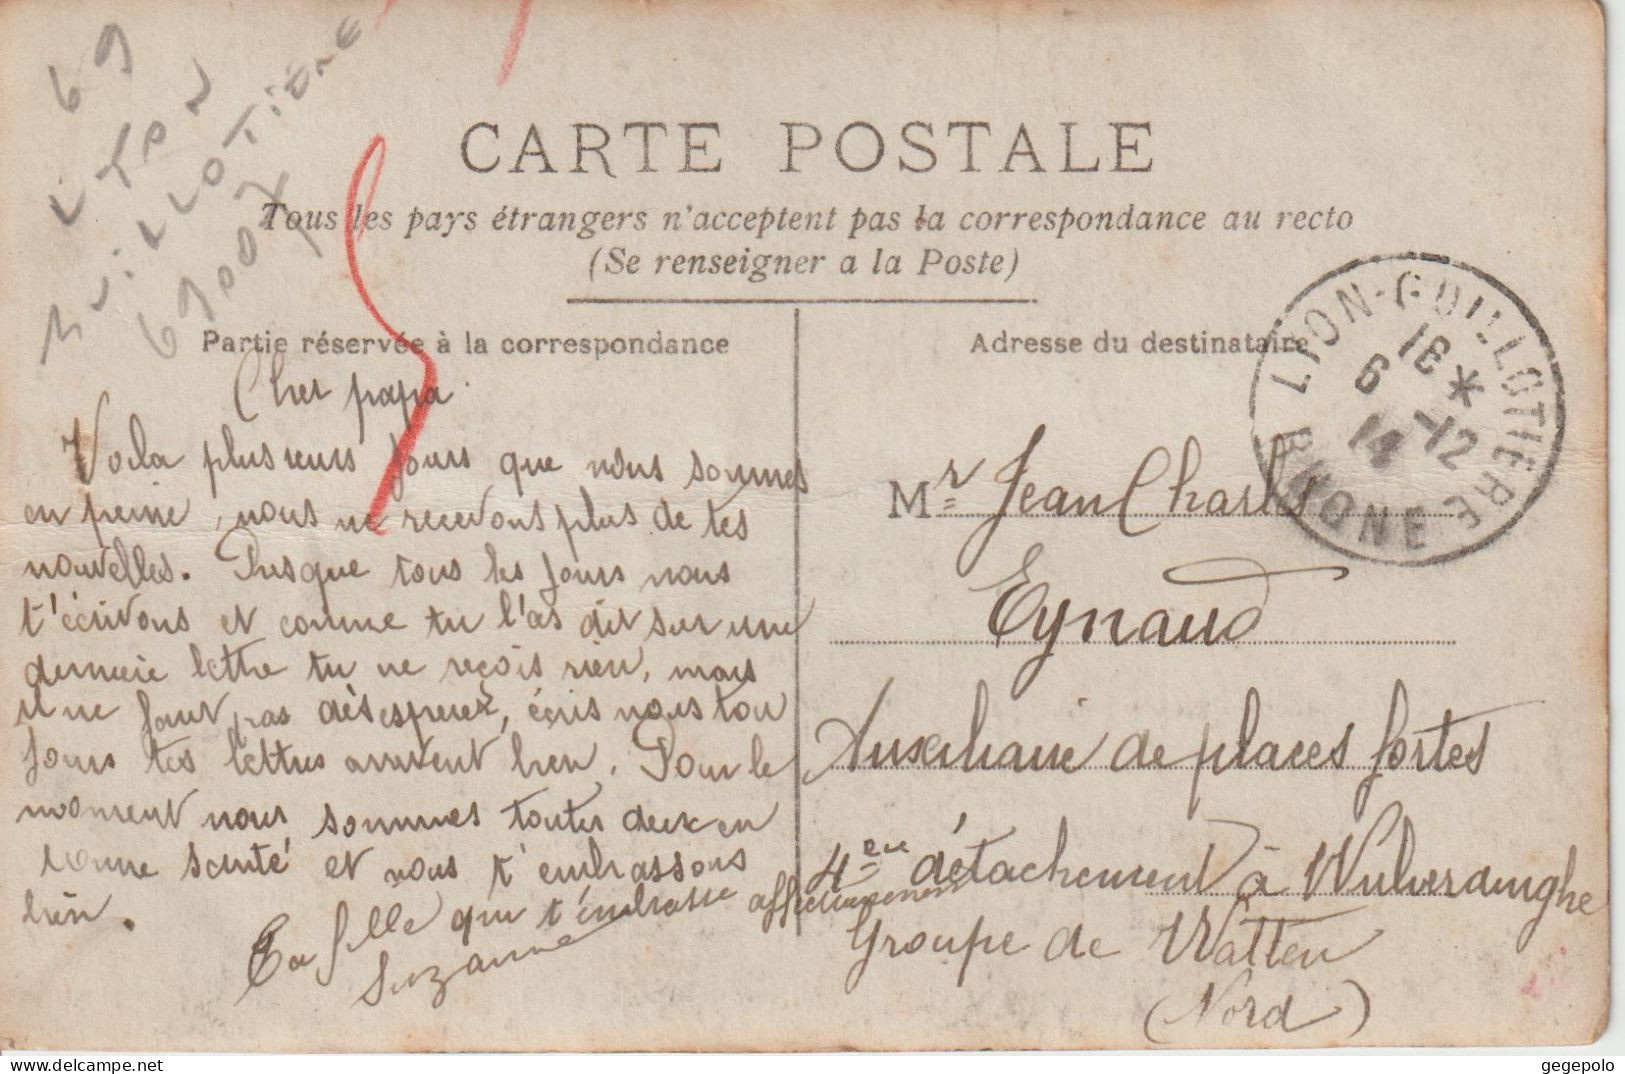 69
LYON
GUILLOTIÈRE
69007
CARTE POSTALE
Tous les pays étrangers n'acceptent pas la correspondance au recto
(Se renseigner a la Poste)
Partie réservée à la correspondance
Cher papa
Voila plusieurs jours que nous sommes
en peine, nous ne recevons plus de tes
nouvelles. Presque tous les jours nous
t'écrivons et comme tu l'as dit sur une
derniere lettre tu ne reçois rien, mais
il ne faut pas désesperer, écris nous tou
jours tes lettres arrivent bien. Pour le
moment nous sommes toutes deux en
bonne santé et nous t'embrassons
bien.
Ta fille qui t'embrasse affectueusement
Suzanne
Adresse du destinataire
LYON-GUILLOTIERE
18 *
6 -12
14
RHONE
Mr Jean Charles
Eynaud
Auxiliaire de places fortes
4eme détachement à Wulverdinghe
Groupe de Watten
(Nord)
gegepolo